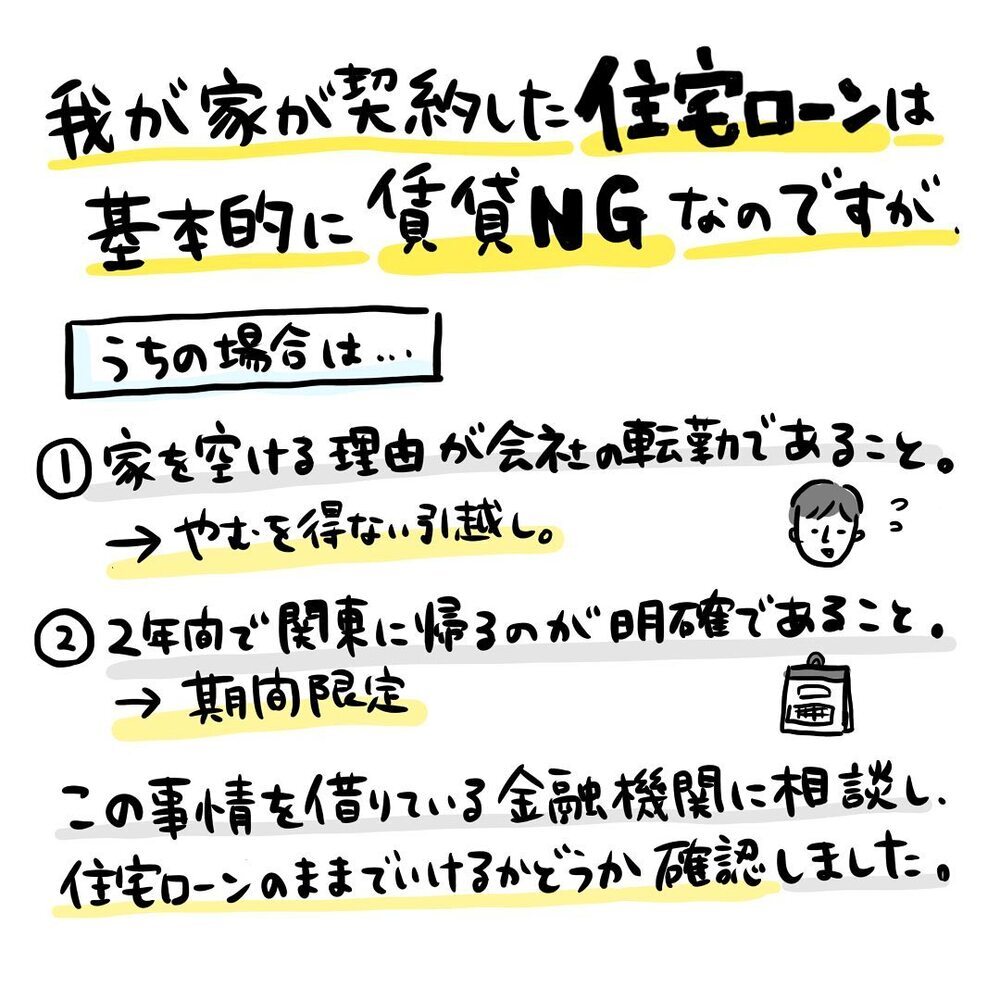 我が家が契約した住宅ローンは
基本的に賃貸NGなのですが、
うちの場合は…
① 家を空ける理由が会社の転勤であること。
→ やむを得ない引越し。
② 2年間で関東に帰るのが明確であること。
→ 期間限定
この事情を借りている金融機関に相談し、
住宅ローンのままでいけるかどうか確認しました。